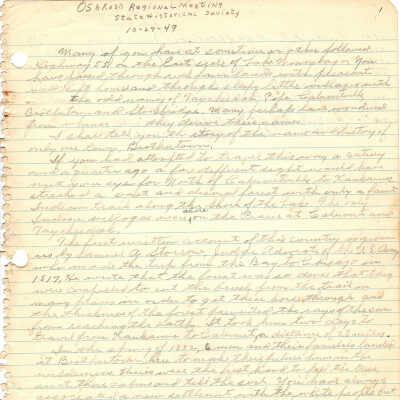 Oshkosh Regional Meeting
State Historical Society
10-29-49
1
Many of you have at sometime or other followed
Highway 55 on the East side of Lake Winnebago. You
have passed through rich farm lands with pleasant
well kept homes and through sleepy little villages with
the odd names of Taycheedah, Pipe, Calumet
Brothertown and Stockbridge. Many perhaps have wondered
from where they derive their names.
I shall tell you the story of the name and history of
only one town, Brothertown.
If you had attempted to travel this way a century
and a quarter ago a far different sight would have
met your eyes for North of to Kaukauna
stretched a vast and silent forest with only a faint
Indian trail along the shore of the lake. The only
Indian villages were on the Prairie at Calumet and
Taycheedah.
The first written account of this country was given
us by Samuel A. Storrow, Judge Advocate of the U.S. Army
who made the trip from the Bay to Chicago in
1817. He wrote that the forest was so dense that they
were compelled to cut the brush from the trail in
many places in order to get their horses through and
the thickness of the forest prevented the rays of the sun
from reaching the earth. It took him two days to
travel from Kaukauna to Calumet a distance of miles.
In the spring of 1832, 6 men and their families landed
at Brothertown here to make their future home in the
wilderness. theirs were the first hand to fell the trees
erect their cabins and till the soil. You have always
a new settlement with the white people but